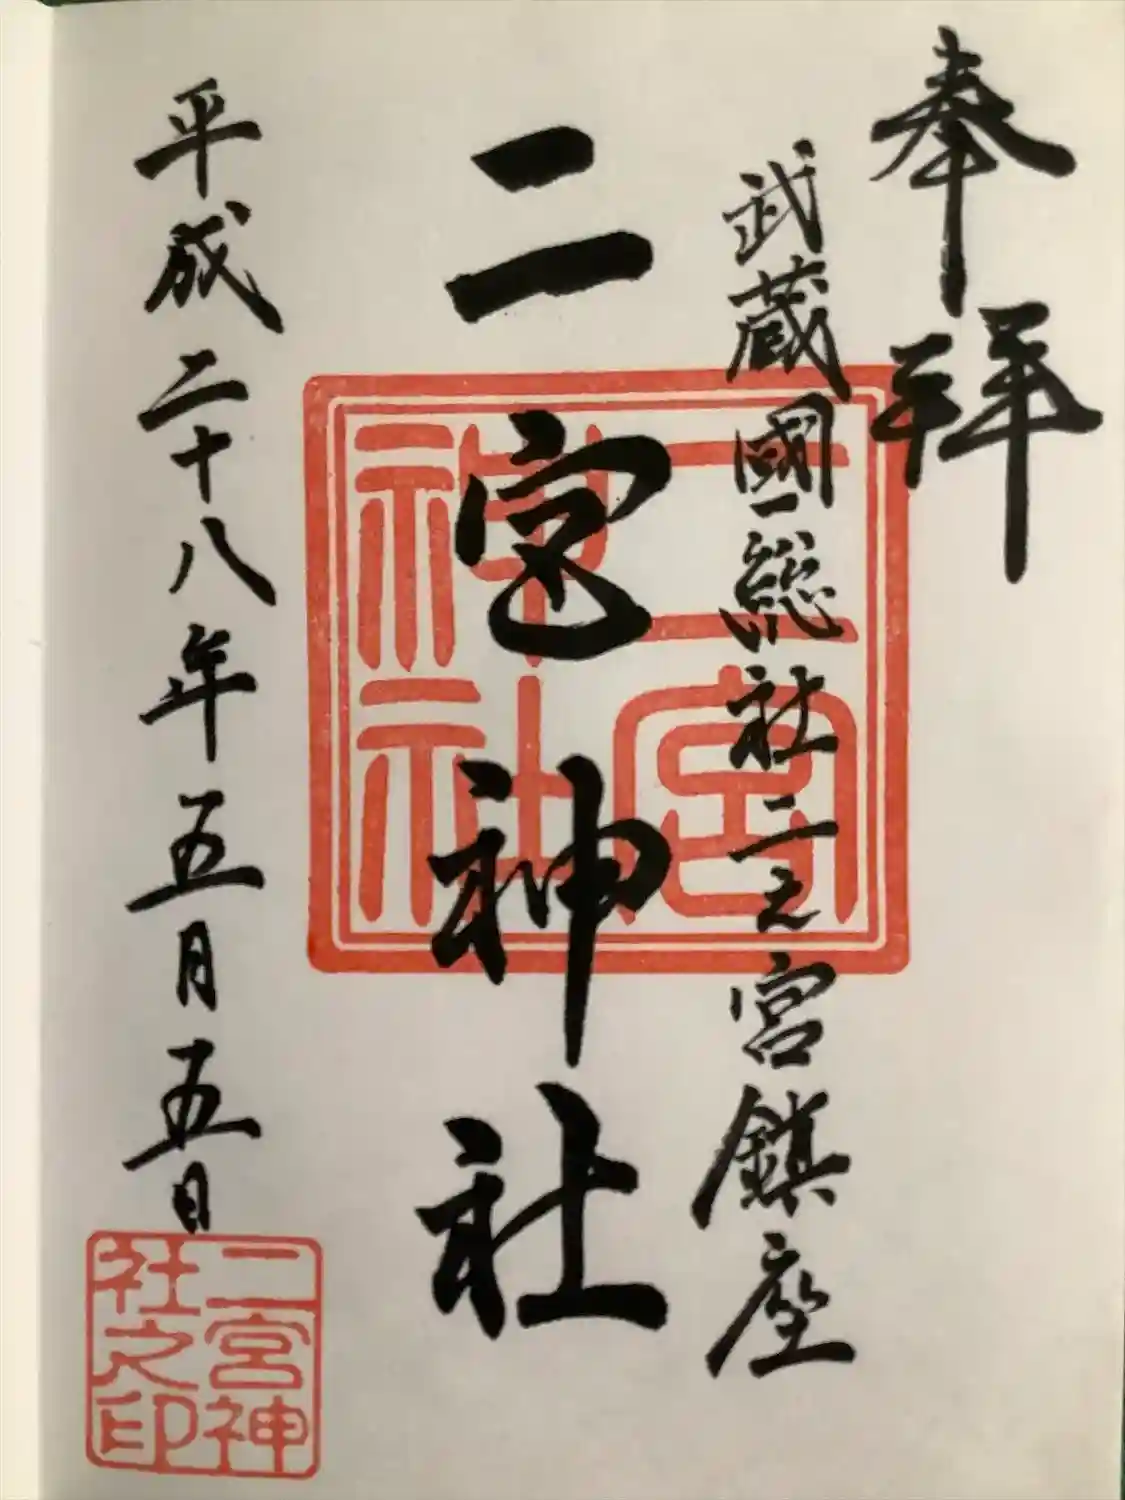 奉拝
武蔵國総社二之宮鎮座
二宮神社
二宮神社
平成二十八年五月五日
二宮神社之印